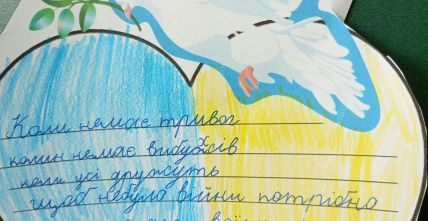 Коли немає тривог
колин немає вибухів
коли усі дружуть
щоб небуло війни потрібно